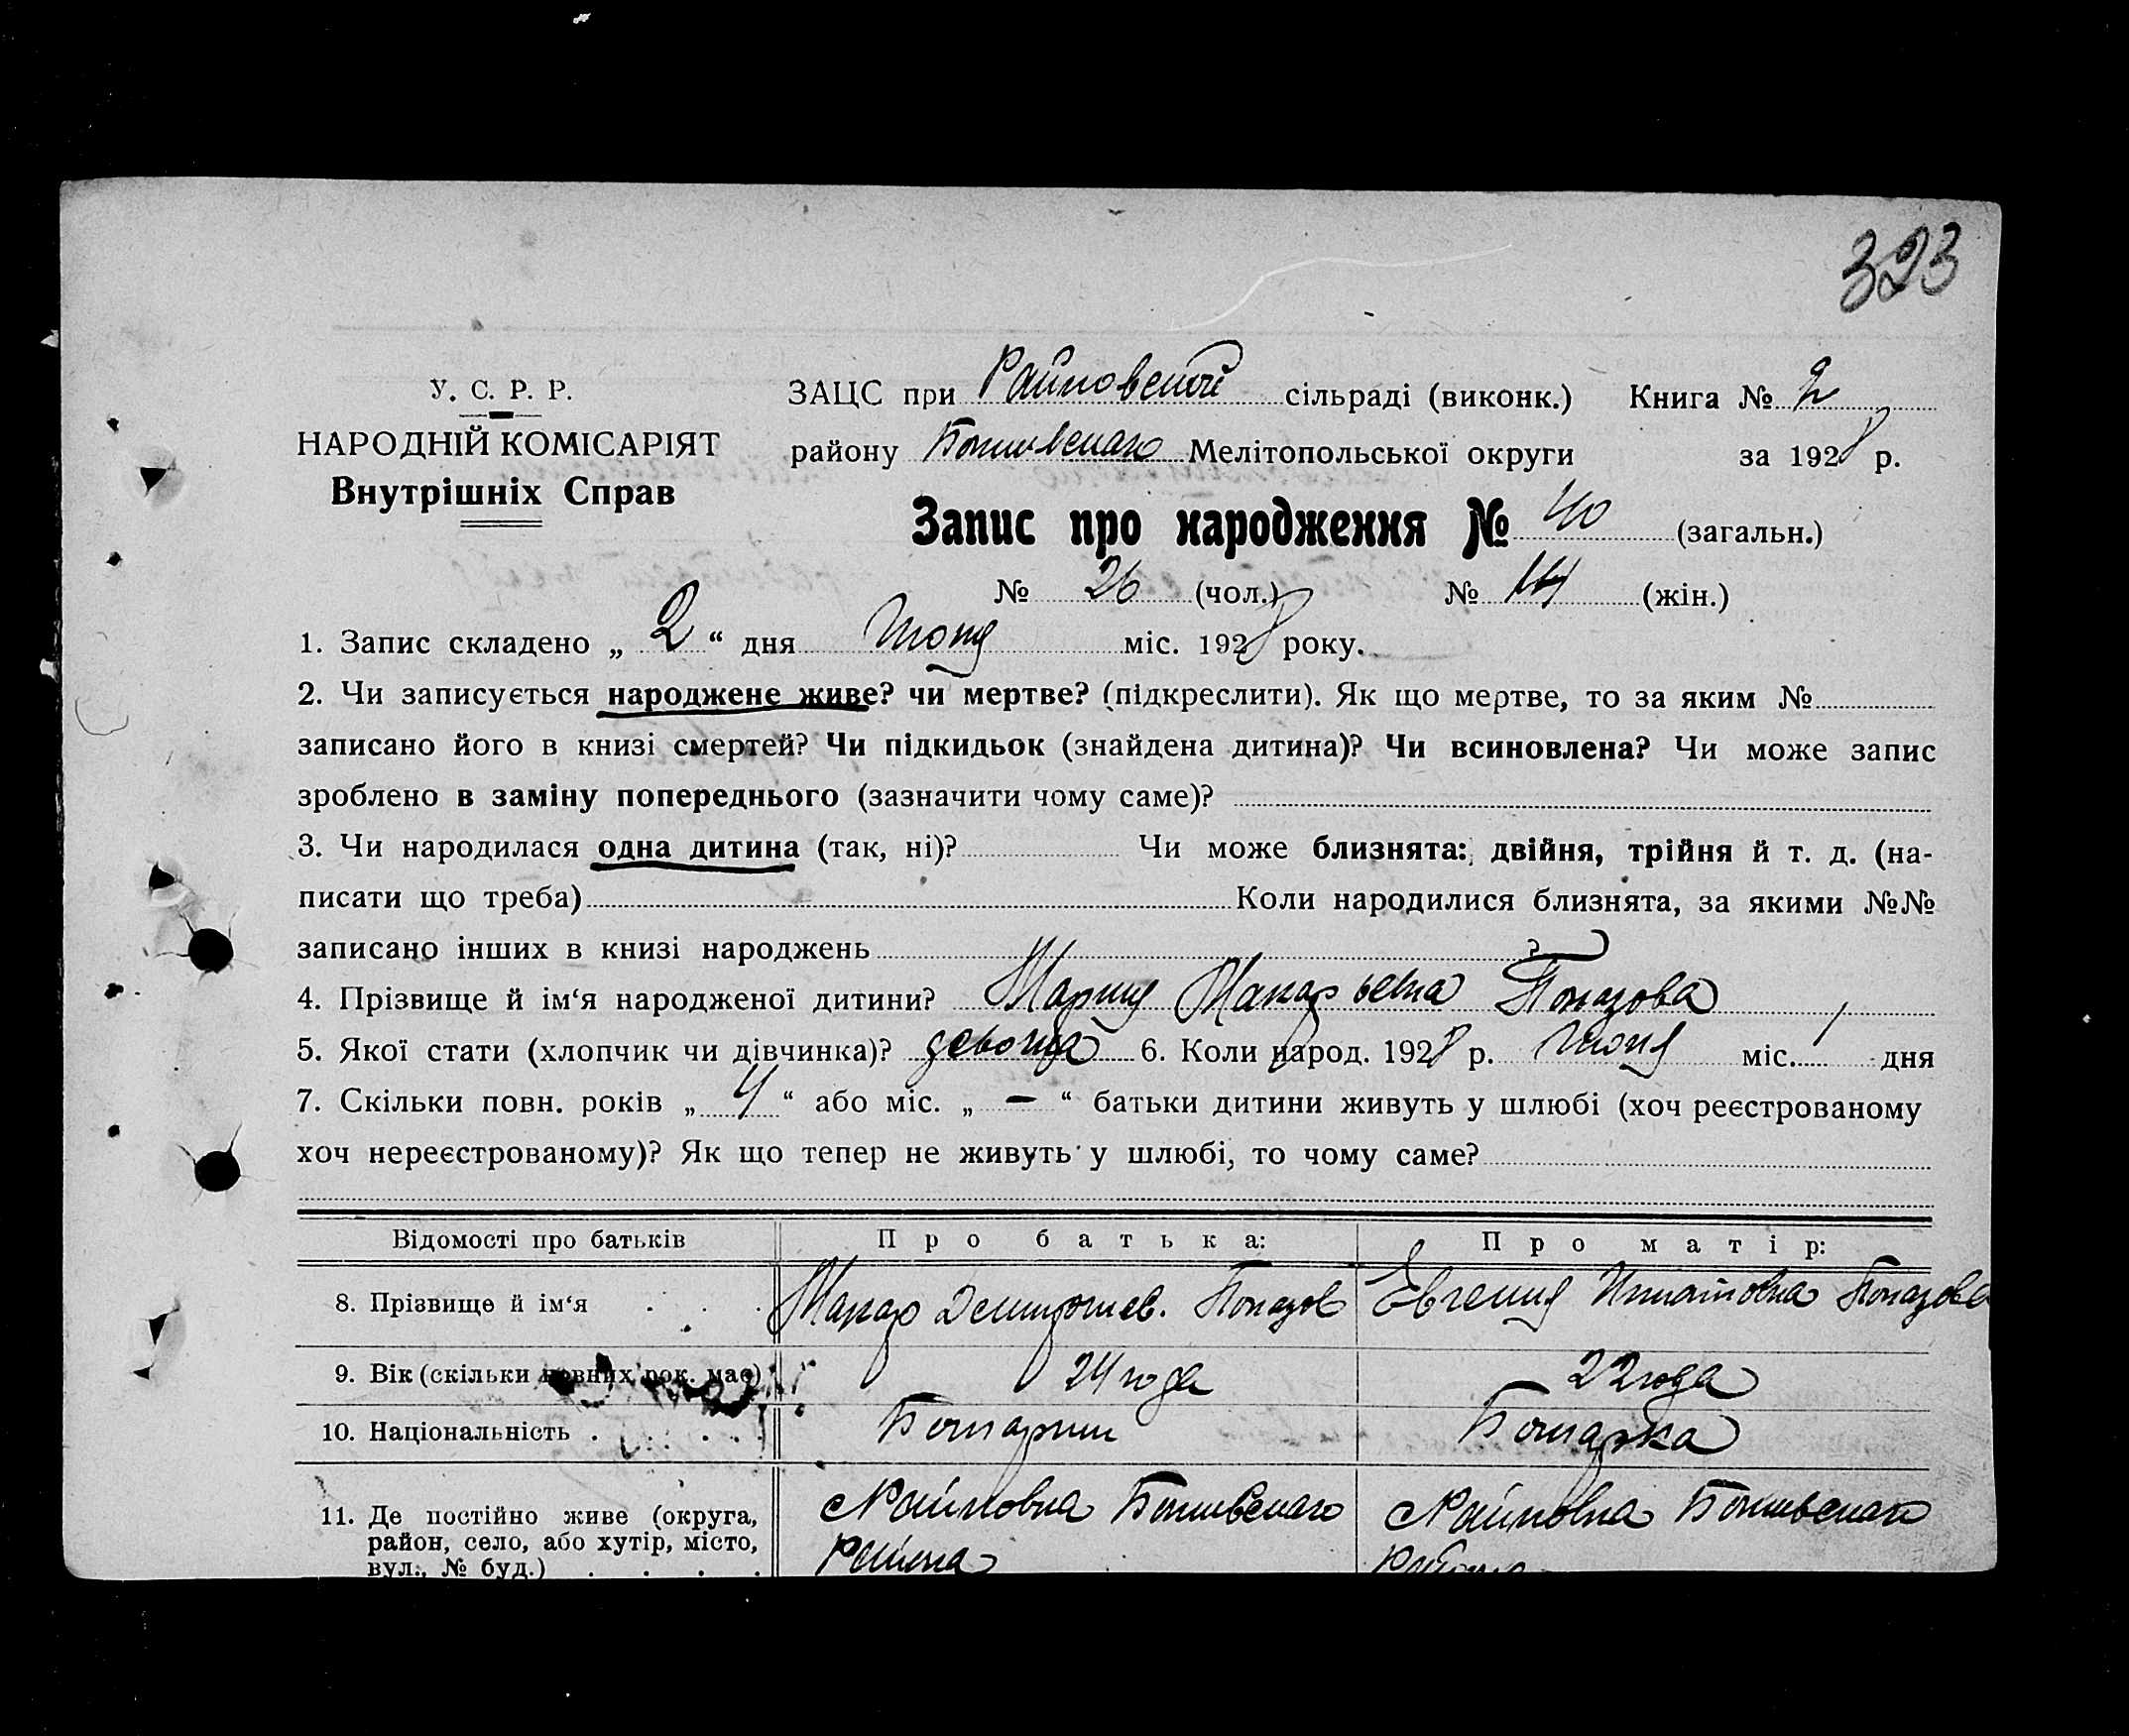 323
У. С. Р. Р.
НАРОДНІЙ КОМІСАРІЯТ
Внутрішніх Справ
ЗАЦС при Райновской сільраді (виконк.) Книга № 2
району Мелітопольської округи за 1928 р.
Запис про народження № 40 (загальн.)
№ 26 (чол.) № 14 (жін.)
1. Запис складено „ 2 “ дня міс. 1928 року.
2. Чи записується народжене живе? чи мертве? (підкреслити). Як що мертве, то за яким №
записано його в книзі смертей? Чи підкидьок (знайдена дитина)? Чи всиновлена? Чи може запис
зроблено в заміну попереднього (зазначити чому саме)?
3. Чи народилася одна дитина (так, ні)? Чи може близнята: двійня, трійня й т. д. (на-
писати що треба) Коли народилися близнята, за якими №№
записано інших в книзі народжень ?
4. Прізвище й ім‘я народженої дитини? Мария Макарьевна
5. Якої стати (хлопчик чи дівчинка)? 6. Коли народ. 1928 р. міс. 1 дня
7. Скільки повн. років „ 4 “ або міс. „ — “ батьки дитини живуть у шлюбі (хоч реєстрованому
хоч нереєстрованому)? Як що тепер не живуть у шлюбі, то чому саме?
Відомості про батьків Про батька: Про матір:
8. Прізвище й ім‘я Макар Евгения Игнатовна
9. Вік (скільки повних рок. має) 24 года 22 года
10. Національність Болгарин Болгарка
11. Де постійно живе (округа, с Райновка с Райновка
район, село, або хутір, місто, района района
вул., № буд.)